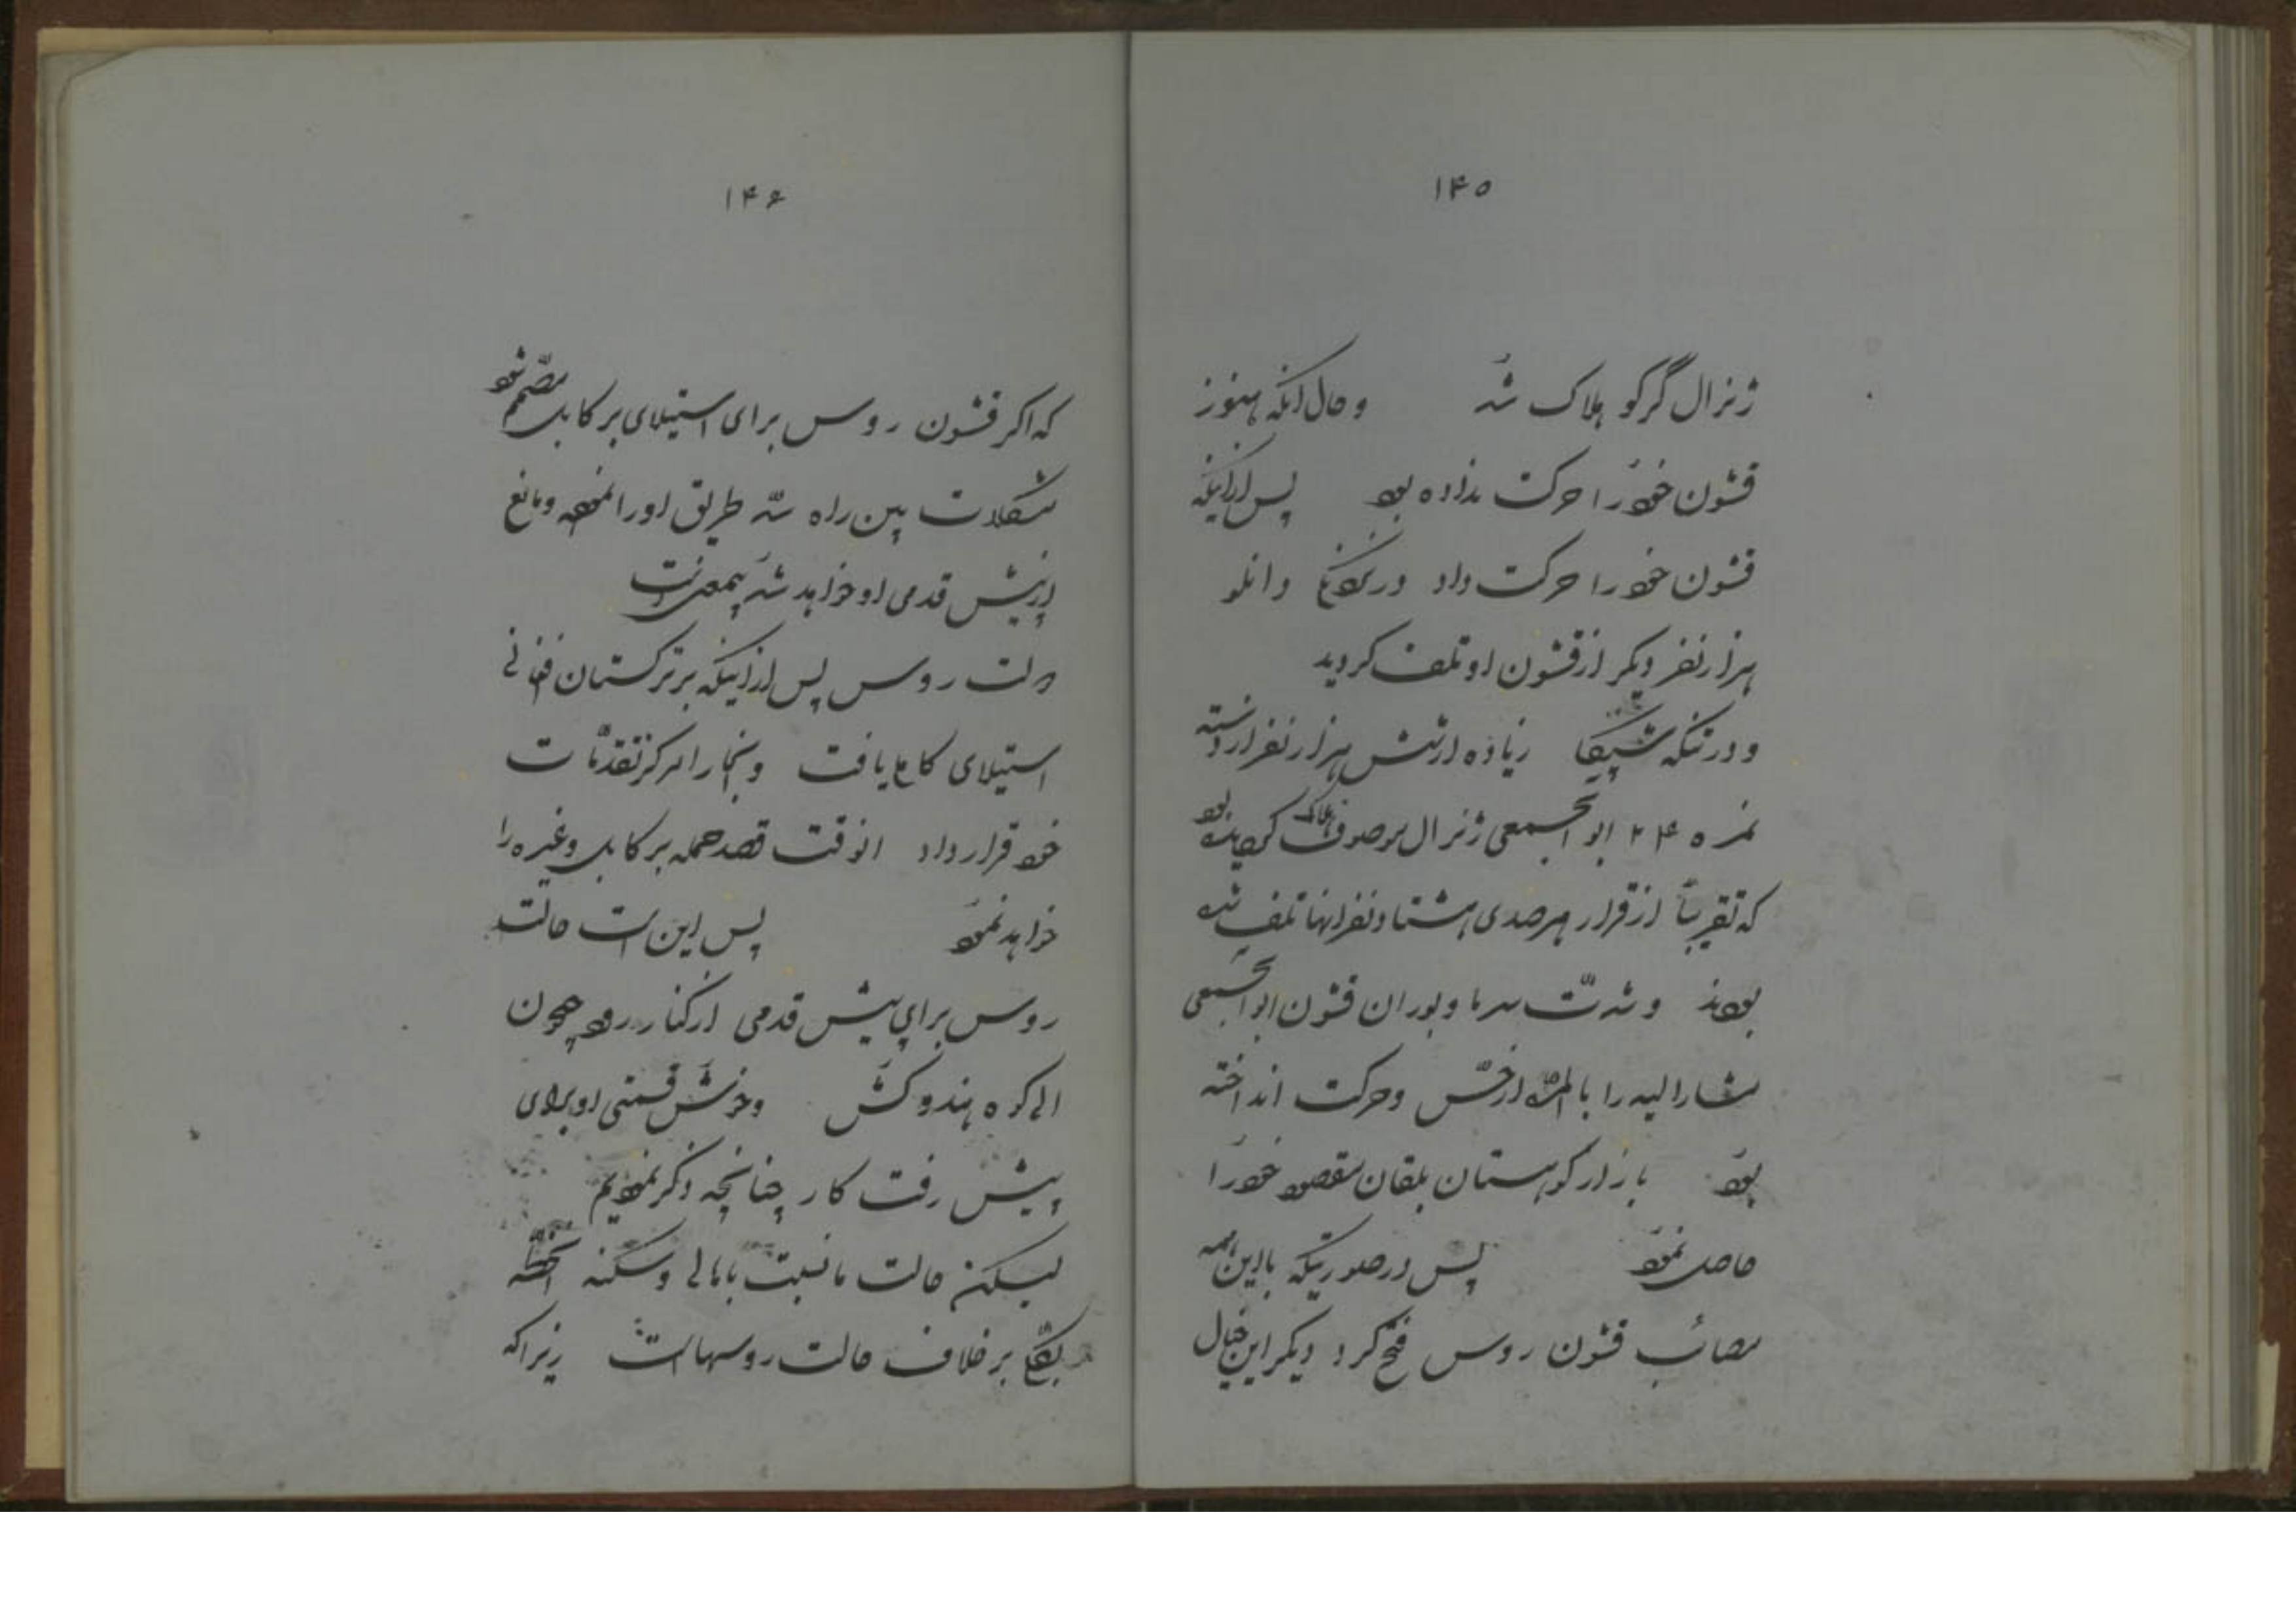 ۱۴۵
ژنرال گرگو هلاک شد و حال انکه هنوز
قشون خود را حرکت نداده بود پس از انکه
قشون خود را حرکت داد در
هزار نفر دیکر از قشون او تلف کردید
و در تنکه شیپکا زیاده از شش هزار نفر از دسته
نمره ۲۴ ابوابجمعی ژنرال موصوف هلاک کردیده بود
که تقریباً از قرار هر صدی هشتاد نفر انها تلف شده
بودند و شدّت سرما و بوران قشون ابوابجمعی
مشارالیه را بالمرّه از حسّ و حرکت انداخته
بود باز از کوهستان بلقان مقصود خود را
حاصل نمود پس در صورتیکه با این همه
مصائب قشون روس فتح کرد دیکر این خیال
۱۴۶
که اکر قشون روس برای استیلای بر کابل مصمّم شود
مشکلات بین راه سدّ طریق او را نموده و مانع
از پیش قدمی او خواهد شد بیمعنی است
دولت روس پس از اینکه بر ترکستان افغانی
استیلای کامل یافت و بخارا را مرکز تقدّمات
خود قرار داد انوقت قصد حمله بر کابل و غیره را
خواهد نمود پس این است حالت
روس برای پیش قدمی از کنار رود جیحون
الی کوه هندوکش و خوش قسمتی او برای
پیش رفت کار چنانچه ذکر نمودیم
لیکن حالت ما نسبت باهالی و سکنه انخطّه
بکلی بر خلاف حالت روسهاست زیرا که